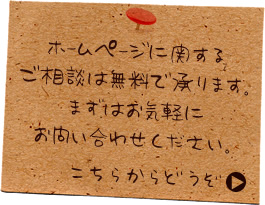 ホームページに関する
ご相談は無料で承ります。
まずはお気軽に
お問い合わせください。
こちらからどうぞ